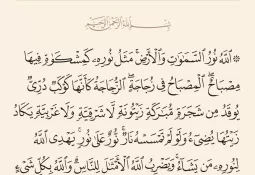 بِسْمِ ٱللَّهِ ٱلرَّحْمَٰنِ ٱلرَّحِيمِ
۞ ٱللَّهُ نُورُ ٱلسَّمَٰوَٰتِ وَٱلْأَرْضِ ۚ مَثَلُ نُورِهِۦ كَمِشْكَوٰةٍ فِيهَا
مِصْبَاحٌ ۖ ٱلْمِصْبَاحُ فِى زُجَاجَةٍ ۖ ٱلزُّجَاجَةُ كَأَنَّهَا كَوْكَبٌ دُرِّىٌّ
يُوقَدُ مِن شَجَرَةٍ مُّبَٰرَكَةٍ زَيْتُونَةٍ لَّا شَرْقِيَّةٍ وَلَا غَرْبِيَّةٍ يَكَادُ
زَيْتُهَا يُضِىٓءُ وَلَوْ لَمْ تَمْسَسْهُ نَارٌ ۚ نُّورٌ عَلَىٰ نُورٍ ۗ يَهْدِى ٱللَّهُ
لِنُورِهِۦ مَن يَشَآءُ ۚ وَيَضْرِبُ ٱللَّهُ ٱلْأَمْثَٰلَ لِلنَّاسِ ۗ وَٱللَّهُ بِكُلِّ شَىْءٍ